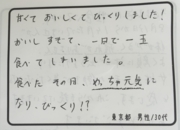 甘くて おいしくて びっくりしました!
おいしすぎて、一日で一玉
食べてしまいました。
食べた その日、めっちゃ元気に
なり、びっくり!?
東京都 男性/30代